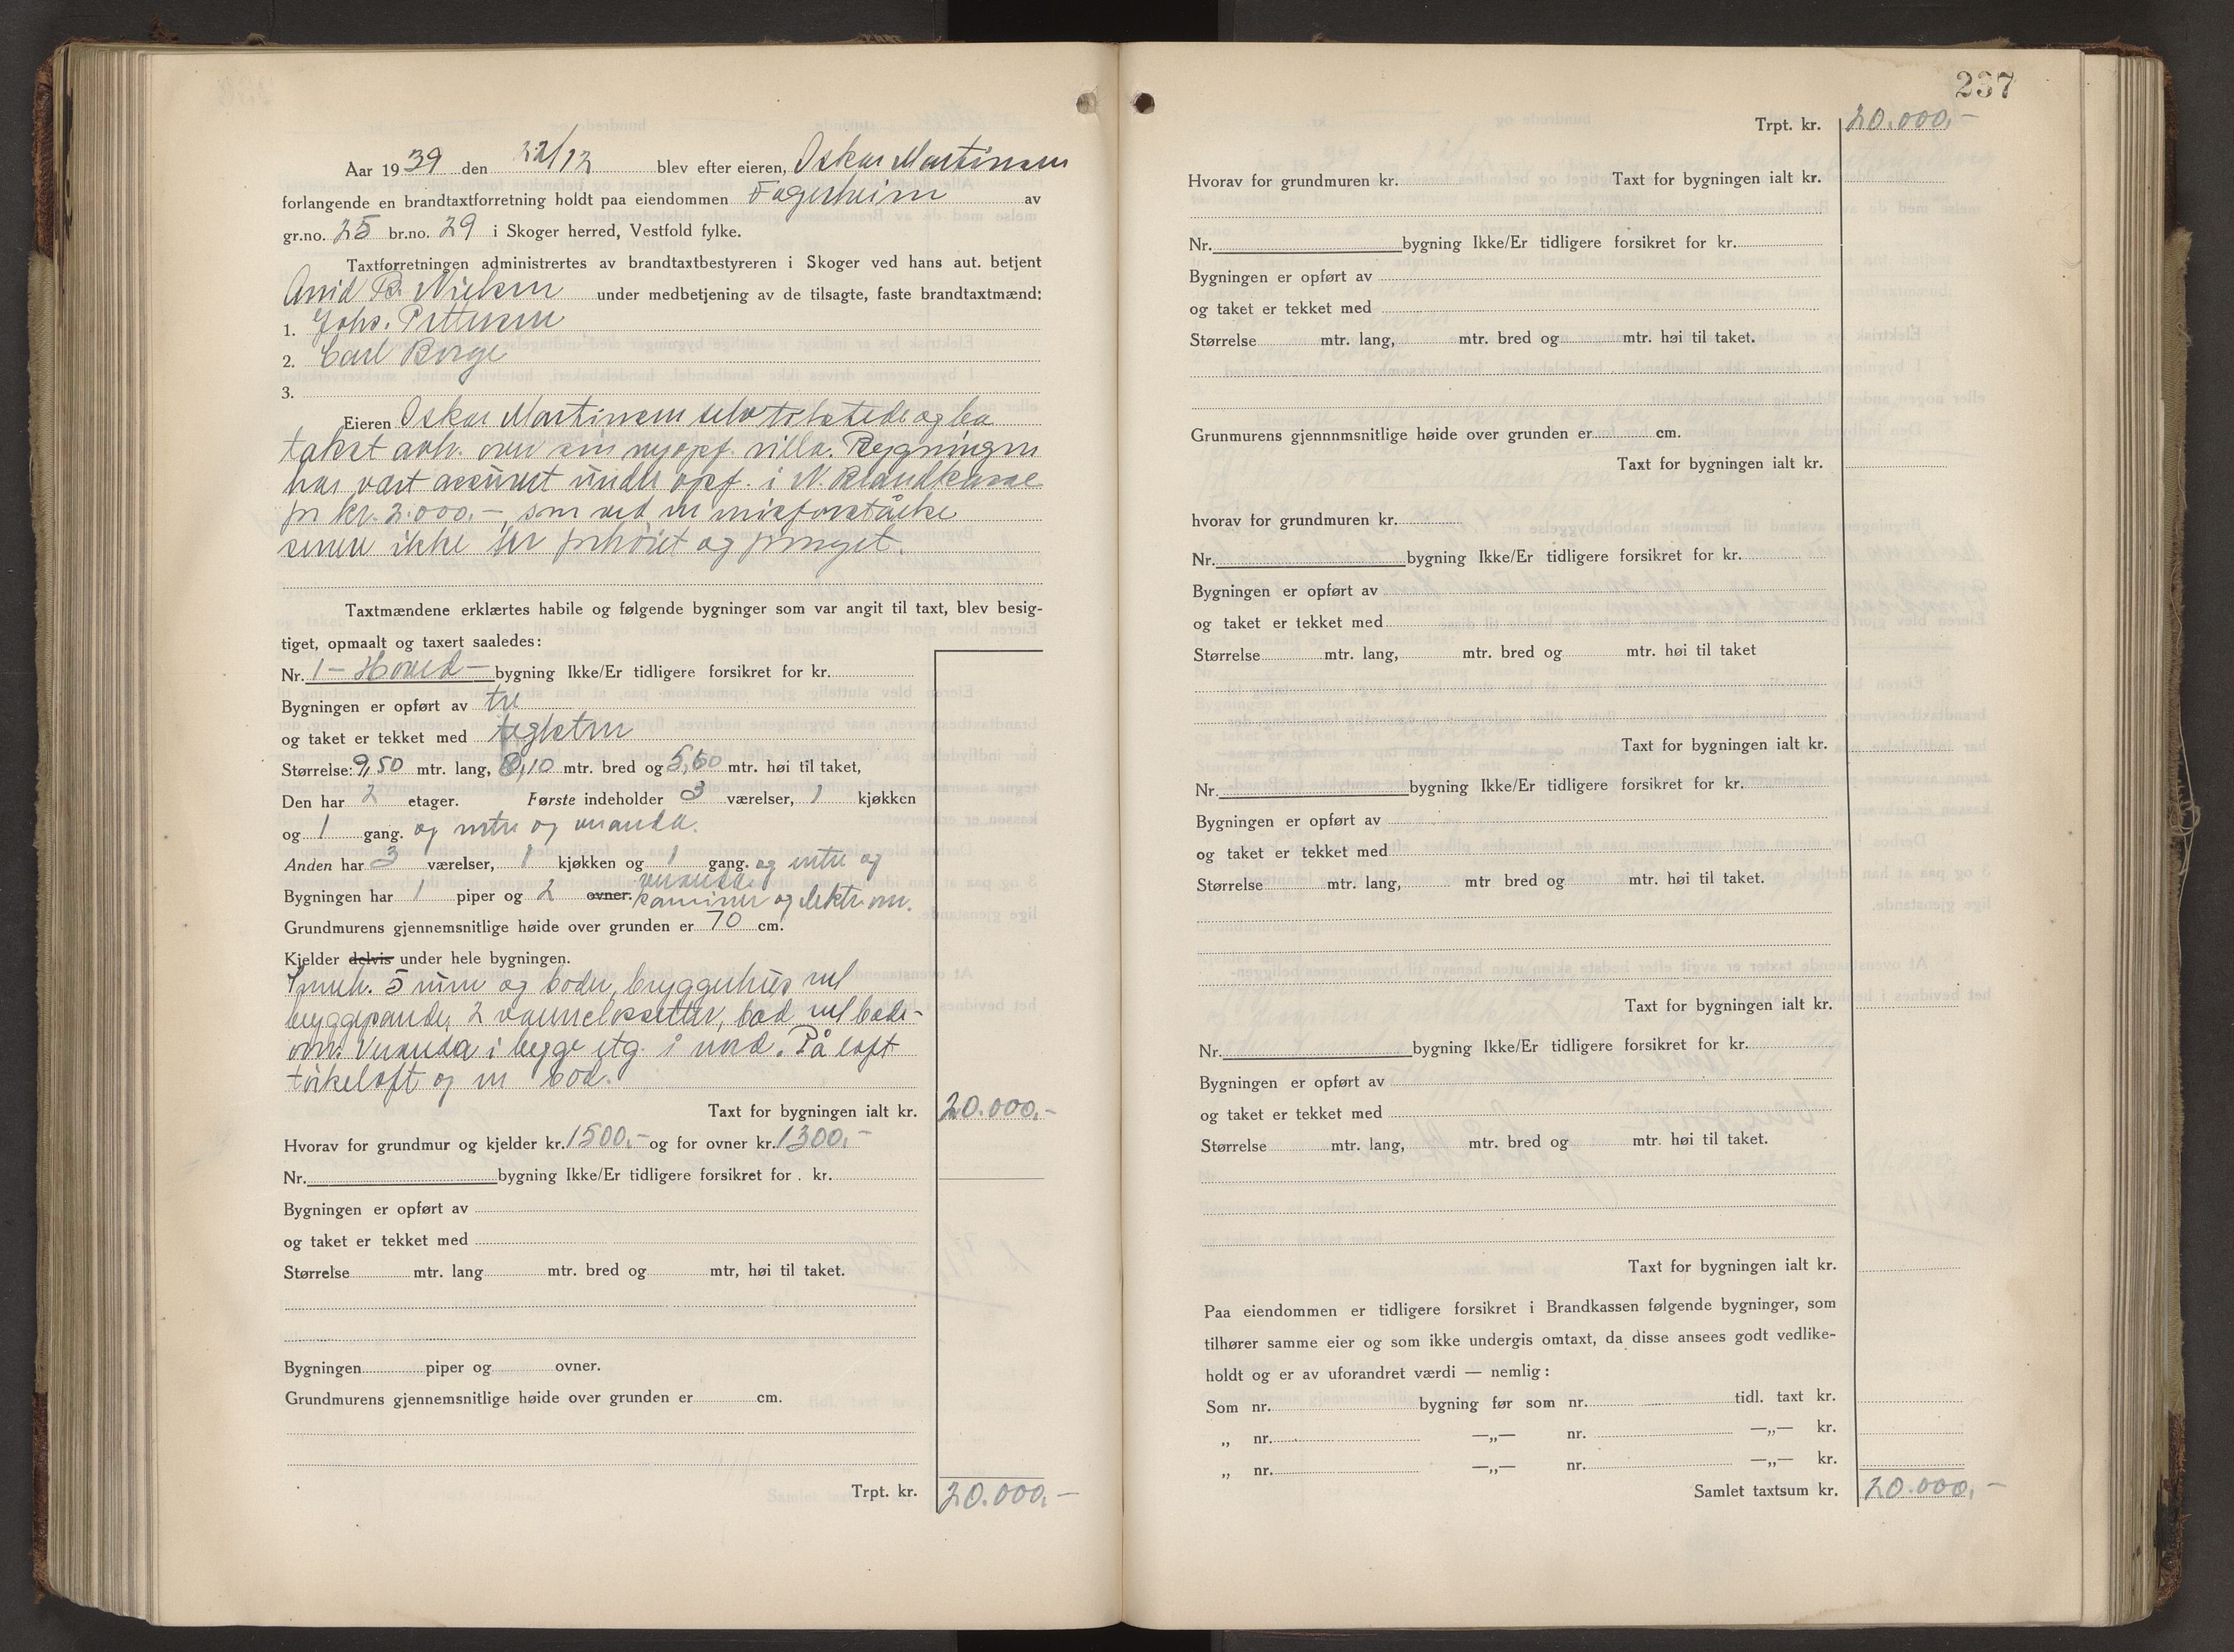 Aar 1939 den 22/12 blev efter eieren, Oskar Martinsen
forlangende en brandtaxtforretning holdt paa eiendommen Fagerheim av
gr.no. 25 br.no. 29 i Skoger herred, Vestfold fylke.
Taxtforretningen administrertes av brandtaxtbestyreren i Skoger ved hans aut. betjent
Arvid B. Nielsen under medbetjening av de tilsagte, faste brandtaxtmænd:
1. Johs. Pettersen
2. Carl Borge
3.
Eieren Oskar Martinsen selv tilstede og ba
takst avh. over sin nyopf. villa. Bygningen
har vært assurert under opf. i N. Brandkasse
for kr. 2.000.– som ved en misforståelse
senere ikke ble forhøiet og fornyet.
Taxtmændene erklærtes habile og følgende bygninger som var angit til taxt, blev besig-
tiget, opmaalt og taxert saaledes:
Nr. 1 – Hoved – bygning Ikke/Er tidligere forsikret for kr.
Bygningen er opført av tre
og taket er tekket med teglsten
Størrelse: 9,50 mtr. lang, 8,10 mtr. bred og 5,60 mtr. høi til taket,
Den har 2 etager. Første indeholder 3 værelser, 1 kjøkken
og 1 gang. og entre og veranda.
Anden har 3 værelser, 1 kjøkken og 1 gang. og entre og
veranda.
Bygningen har 1 piper og 2 ovner. kaminer og elektr. ovn.
Grundmurens gjennemsnitlige høide over grunden er 70 cm.
Kjelder delvis under hele bygningen.
5 rum og boder, bryggerhus m/
bryggepande, 2 vannclosetter, bad m/ bade-
ovn. Veranda i begge etg. i nord. På loft
tørkeloft og en bod.
Taxt for bygningen ialt kr. 20.000.–
Hvorav for grundmur og kjelder kr. 1500.– og for ovner kr. 1300.–
Nr. bygning Ikke/Er tidligere forsikret for . kr.
Bygningen er opført av
og taket er tekket med
Størrelse mtr. lang mtr. bred og mtr, høi til taket.
Bygningen piper og ovner.
Grundmurens gjennemsnitlige høide over grunden er cm.
Trpt. kr. 20.000.–
237
Trpt. kr. 20.000.–
Hvorav for grundmuren kr. Taxt for bygningen ialt kr.
Nr. bygning Ikke/Er tidligere forsikret for kr.
Bygningen er opført av
og taket er tekket med
Størrelse mtr. lang, mtr. bred og mtr. høi til taket.
Grunmurens gjennnmsnitlige høide over grunden er cm.
Taxt for bygningen ialt kr.
hvorav for grundmuren kr.
Nr. bygning Ikke/Er tidligere forsikret for kr.
Bygningen er opført av
og taket er tekket med
Størrelse mtr. lang, mtr. bred og mtr. høi til taket
Taxt for bygningen ialt kr.
Nr. bygning Ikke/Er tidligere forsikret for kr.
Bygningen er opført av
og taket er tekket med
Størrelse mtr. lang, mtr bred og mtr. høi til taket.
Taxt for bygningen ialt kr.
Nr. bygning Ikke/Er tidligere forsikret for kr.
Bygningen er opført av
og taket er tekket med
Størrelse mtr. lang, mtr. bred og mtr. høi til taket.
Taxt for bygningen ialt kr.
Paa eiendommen er tidligere forsikret i Brandkassen følgende bygninger, som
tilhører samme eier og som ikke undergis omtaxt, da disse ansees godt vedlike-
holdt og er av uforandret værdi — nemlig:
Som nr. bygning før som nr. tidl. taxt kr.
„ nr. —„— nr. —„— kr.
„ nr. —„— nr. —„— kr.
Samlet taxtsum kr. 20.000.–